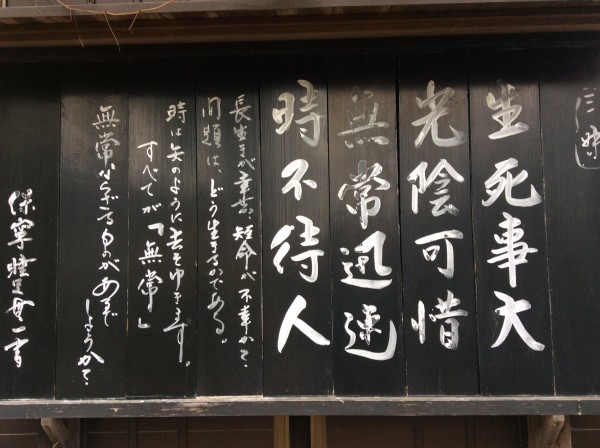 生死事大
光陰可惜
無常迅速
時不待人
長生きが幸か、短命が不幸かで、
問題は、どう生きるかである。
時は矢のように去りゆきます。
すべてが「無常」
無常ならざるものがあるで
しょうか?
保寧 書